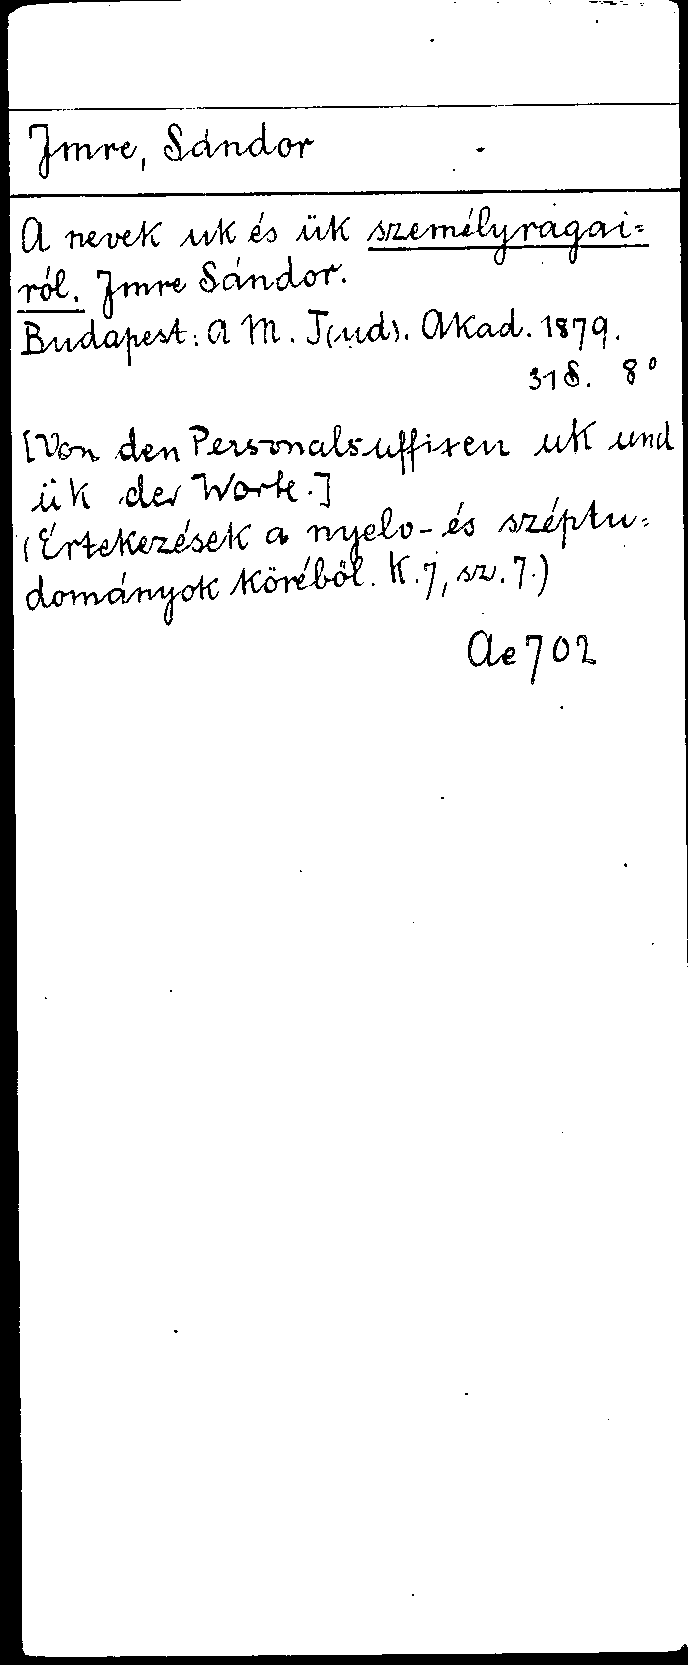 Imre, Sándor
A nevek uk és ük személyragai=
ról. Imre Sándor.
Budapest: A M. T(ud). Akad. 1879.
31 S. 8°
[Von den Personalsuffixen uk und
ük der Worte.]
(Értekezések a nyelv- és széptu=
dományok köréből. K. 7, sz. 7.)
Ae 702